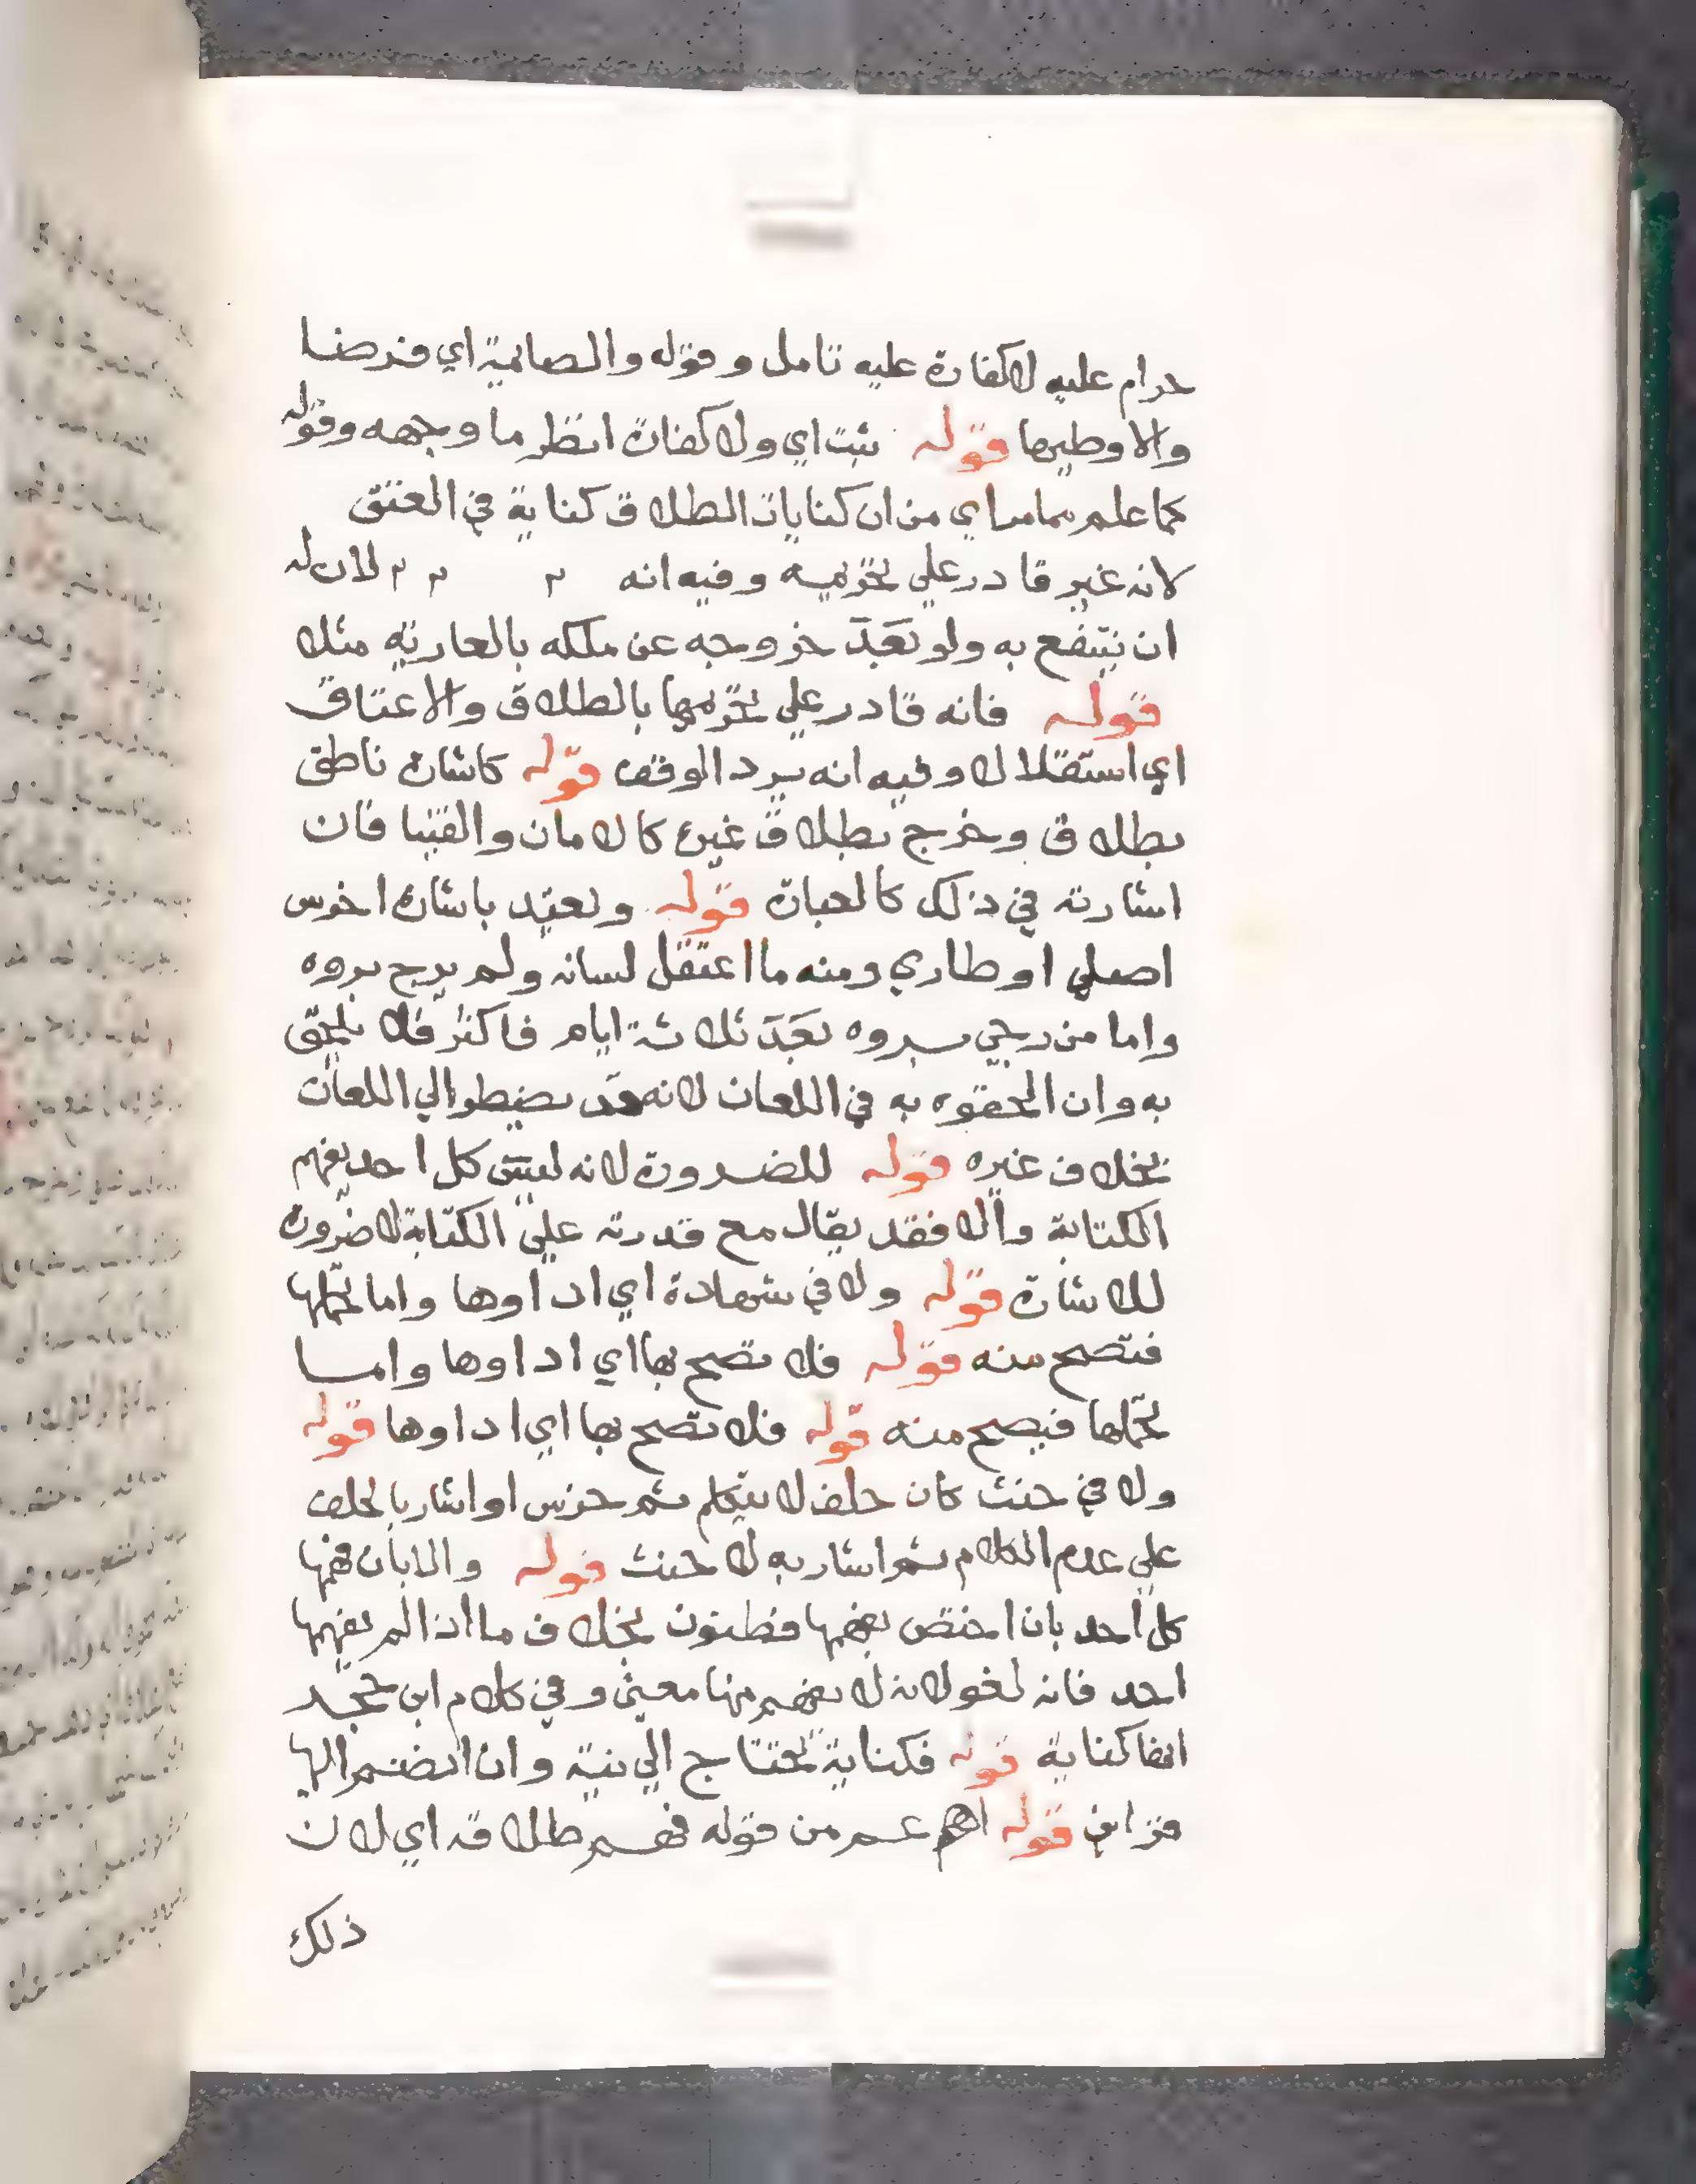 حرام عليه لا كفارة عليه تامل وقوله والصايمة اي فرضا
والا وطيها قوله ثبت اي ولا كفارة انظر ما وجهه وقوله
كما علم مما مر اي من ان كنايات الطلاق كناية في العتق
لانه غير قادر علي تحريمه وفيه انه لان له
ان ينتفع به ولو بعد خروجه عن ملكه بالعارية مثلا
قوله فانه قادر علي تحريمها بالطلاق والاعتاق
اي استقلالا وفيه انه يرد الوقف قوله كاشارة ناطق
بطلاق وخرج بطلاق غيره كالامان والفتيا فان
اشارته في ذلك كالعبارة قوله ويعتد باشارة اخرس
اصلي او طاري ومنه ما اعتقل لسانه ولم يرج بروه
واما من رجي بروه بعد ثلاثة ايام فاكثر فلا يلحق
به وان الحقوه به في اللعان لانه قد يضطر الي اللعان
بخلاف غيره قوله للضرورة لانه ليس كل احد يفهم
الكتابة والا فقد يقال مع قدرته علي الكتابة لا ضرورة
للاشارة قوله ولا في شهادة اي اداوها واما تحملها
فتصح منه قوله فلا تصح بها اي اداوها واما
تحملها فيصح منه قوله فلا تصح بها اي اداوها قوله
ولا في حنث كان حلف لا يتكلم ثم خرس او اشار بالحلف
علي عدم الكلام ثم اشار به لا حنث قوله والا بان فهمها
كل احد بان اختص بفهمها فطنون بخلاف ما اذا لم يفهمها
احد فانه لغو لانه لا يفهم منها معني وفي كلام ابن حجر
انها كناية قوله فكناية تحتاج الي نية وان انضم اليها
قراين قوله اعم من قوله فهم طلاقه اي لان
ذلك